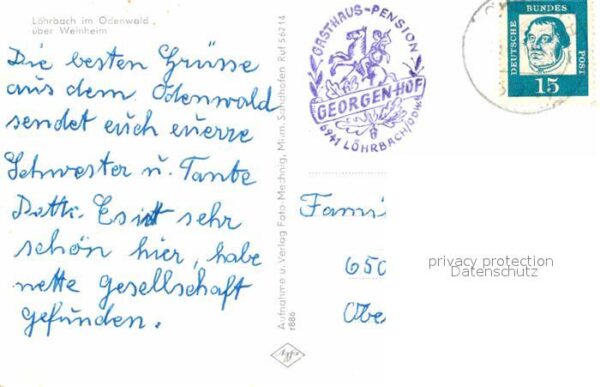 Löhrbach im Odenwald
über Weinheim
Die besten Grüsse
aus dem Odenwald
sendet euch euerre
Schwester u. Tante
Dotti. Es ist sehr
schön hier, habe
nette Gesellschaft
gefunden.
Aufnahme u. Verlag Foto-Mechnig, Mum.-Scharhofen Ruf 56214
r886
Agfa
GASTHAUS-PENSION
GEORGEN-HOF
6941 LÖHRBACH/ODW.
DEUTSCHE BUNDES POST
15
Fami
650
Obe
privacy protection
Datenschutz